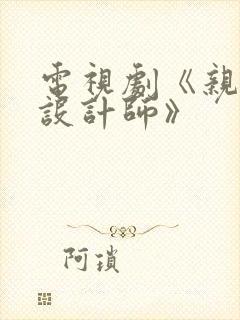 電視劇《親
設計師》
阿瑣